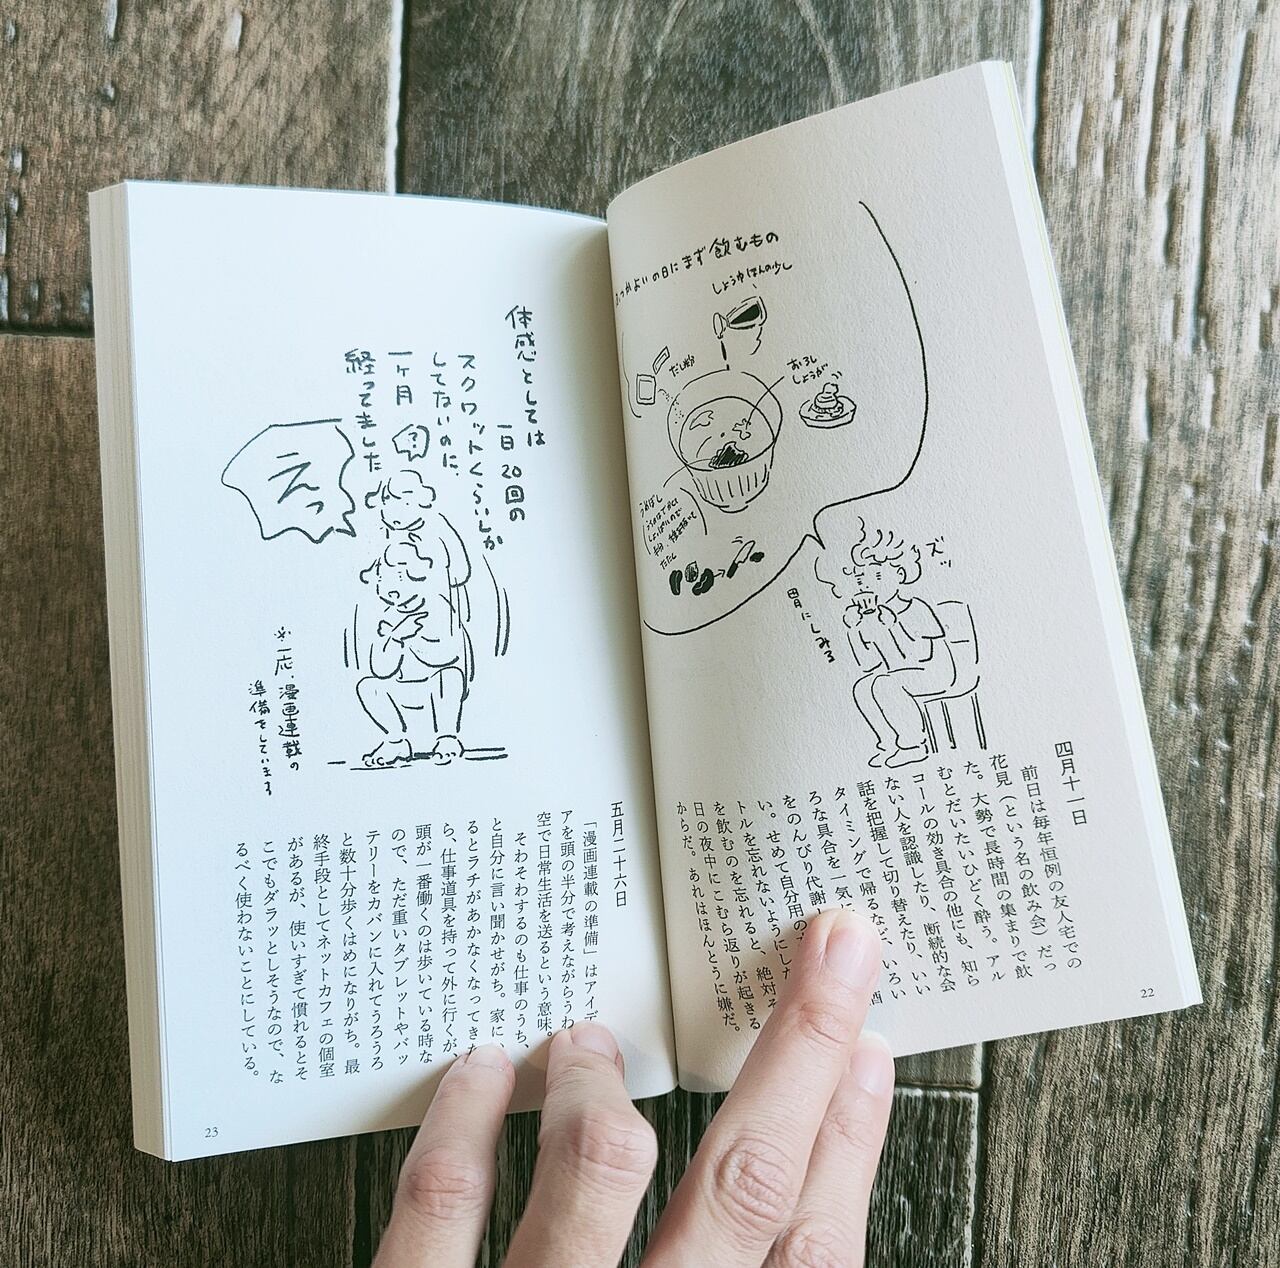 ふつかよいの日にまず飲むもの
しょうゆほんの少し
だし粉
おろし
しょうが
うめぼし
たたく
ズッ
胃にしみる
四月十一日
前日は毎年恒例の友人宅での
花見(という名の飲み会)だっ
た。大勢で長時間の集まりで飲
むとだいたいひどく酔う。アル
コールの効き具合の他にも、知ら
ない人を認識したり、断続的な会
話を把握して切り替えたり、いい
タイミングで帰るなど、いろい
ろな具合を一気に 酒
をのんびり代謝
い。せめて自分用の
トルを忘れないようにした
を飲むのを忘れると、絶対そ
日の夜中にこむら返りが起きる
からだ。あれはほんとうに嫌だ。
22
体感としては
一日20回の
スクワットくらいしか
してないのに、
一ヶ月
経ってました
?
えっ
※一応、漫画連載の
準備をしています
五月二十六日
「漫画連載の準備」はアイデ
アを頭の半分で考えながらうわ
空で日常生活を送るという意味。
そわそわするのも仕事のうち、
と自分に言い聞かせがち。家に
るとラチがあかなくなってきた
ら、仕事道具を持って外に行くが、
頭が一番働くのは歩いている時な
ので、ただ重いタブレットやバッ
テリーをカバンに入れてうろうろ
と数十分歩くはめになりがち。最
終手段としてネットカフェの個室
があるが、使いすぎて慣れるとそ
こでもダラッとしそうなので、な
るべく使わないことにしている。
23